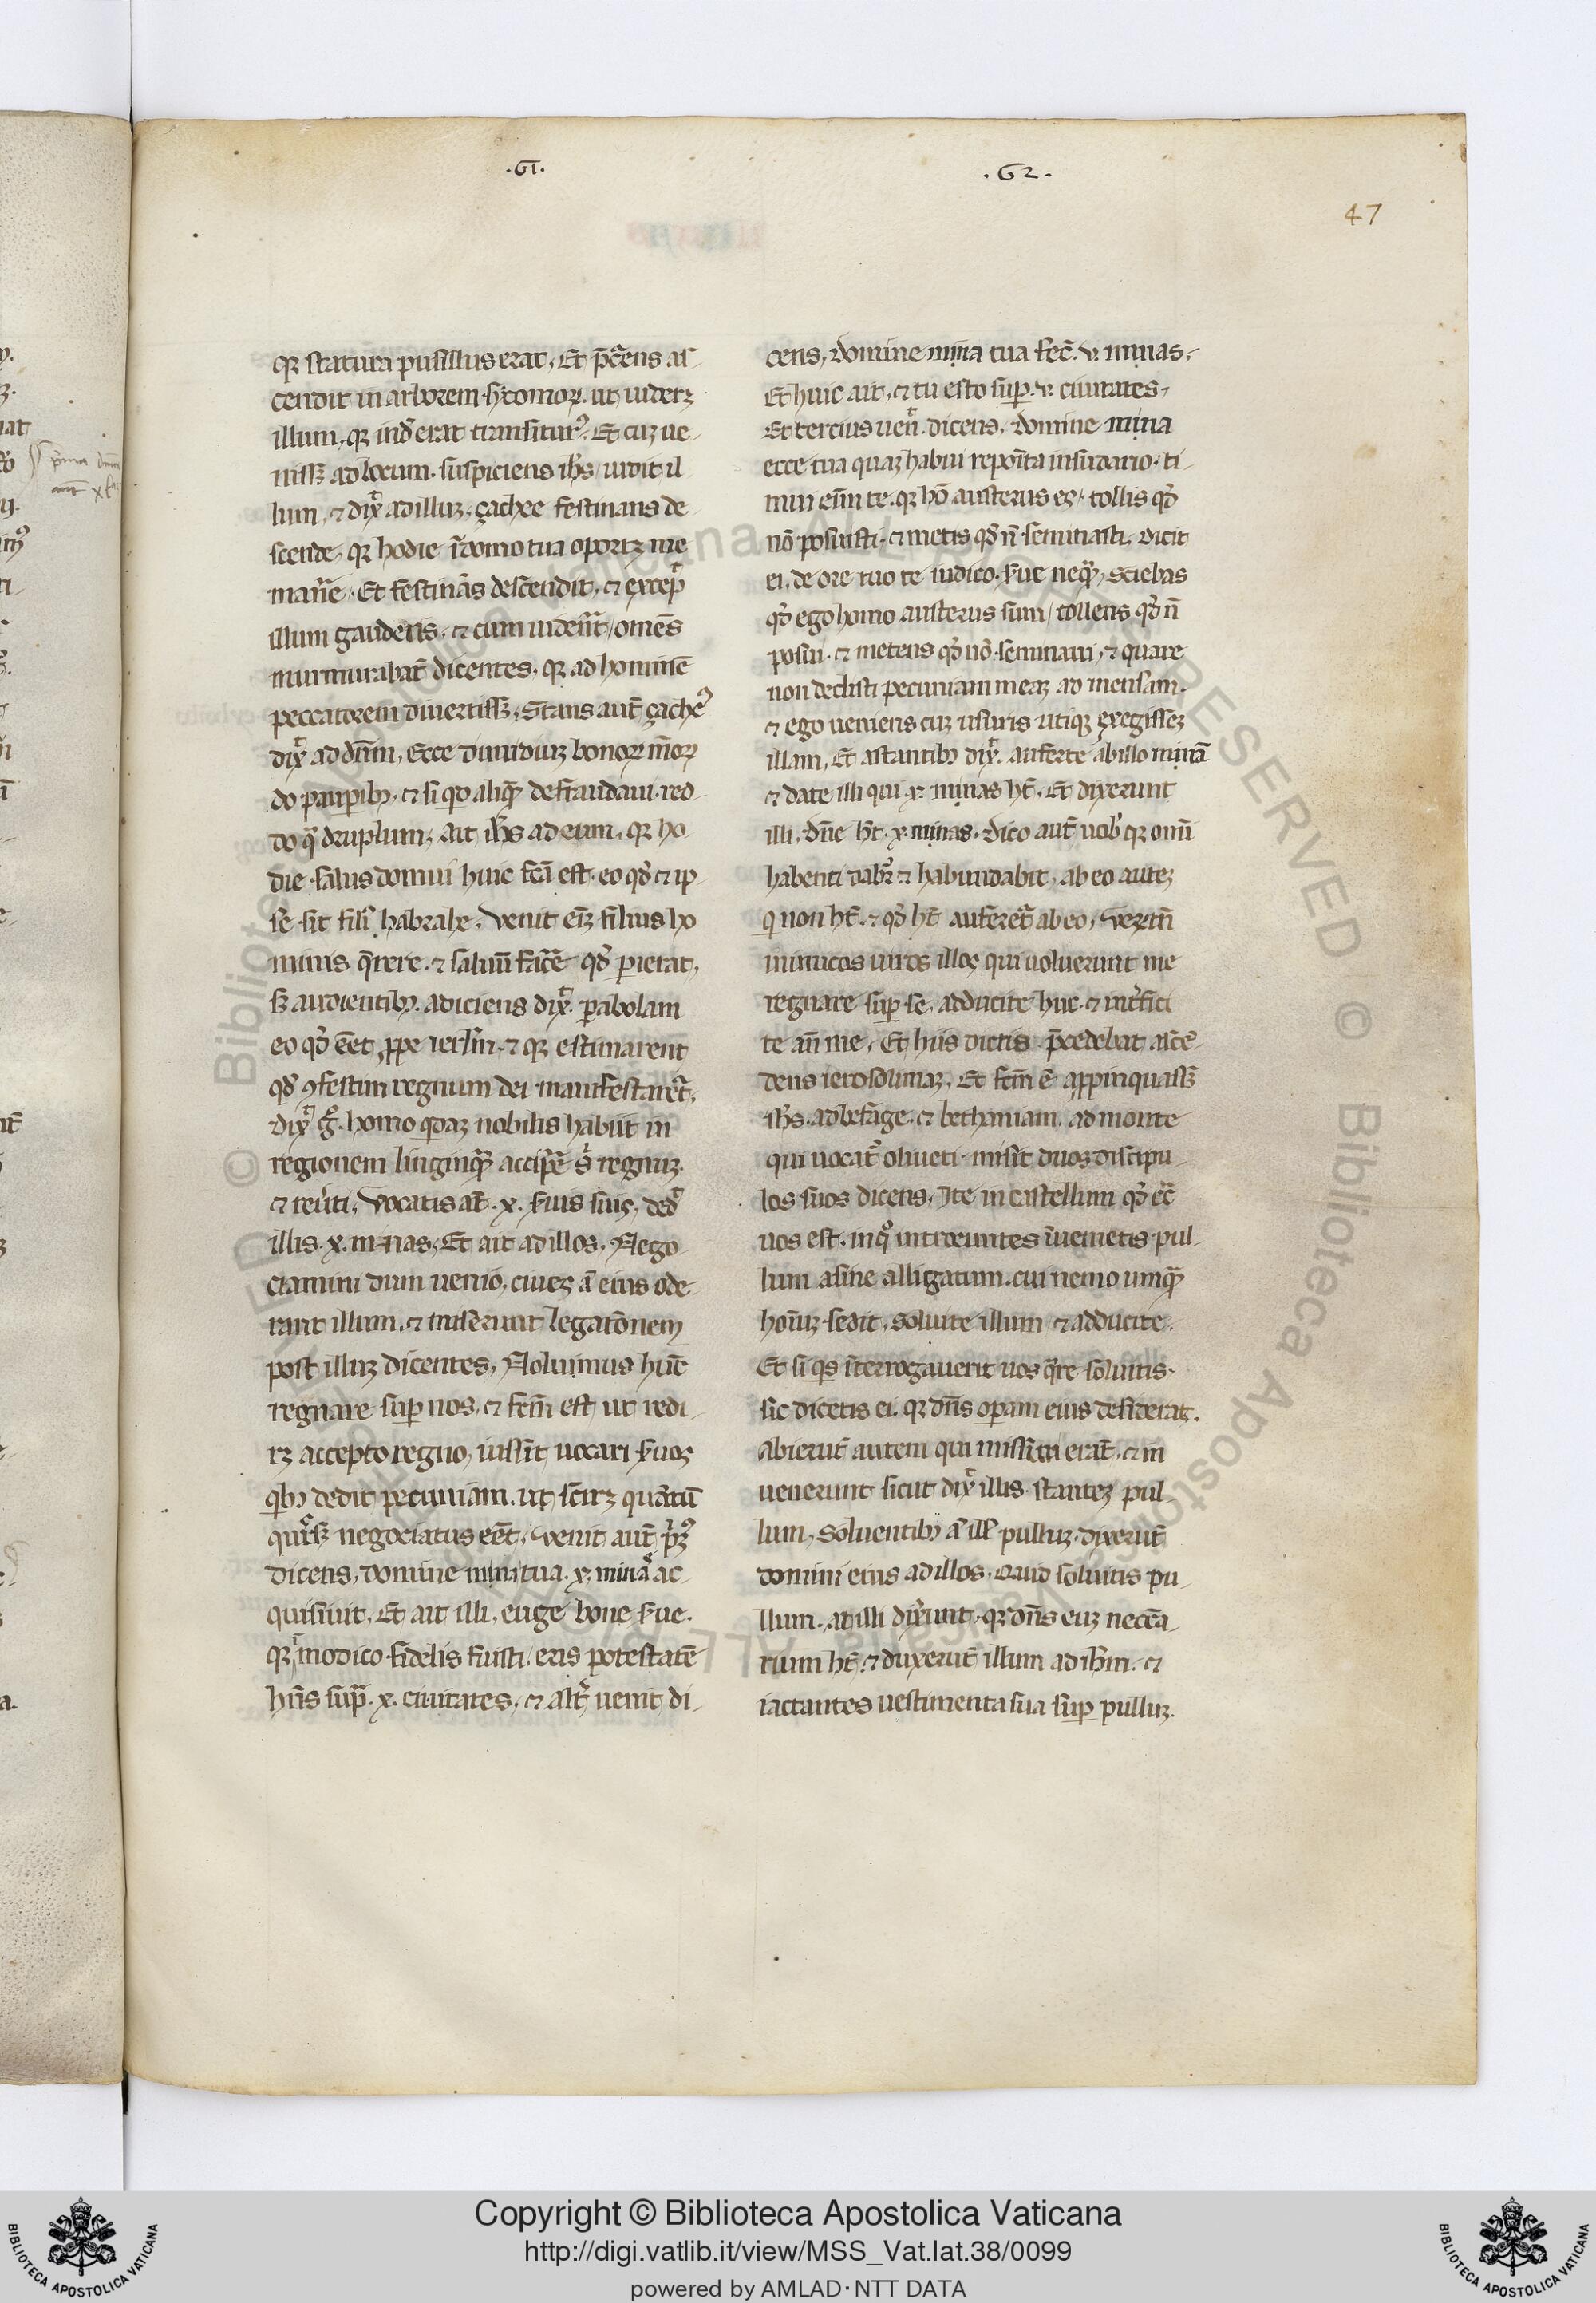 .61.
.62.
47
qꝛ statura pusillus erat, Et p̄cr̄ens as-
cendit in arborem sycomoꝝ. ut uiderꝫ
illum, qꝛ ind̄ erat transitur᷒. Et cuꝫ ue-
nissꝫ ad locum. suspiciens ih̄s uidit il-
lum, ⁊ dix̾ ad illuꝫ. çachee festinans de-
scende, qꝛ hodie ī domo tua oportꝫ me
man̄e. Et festinās descendit, ⁊ excep̾
illum gaudens. ⁊ cum uidēnt̄ / omēs
murmurabant̄ dicentes, qꝛ ad hominē
peccatorem diuertissꝫ. Stans aut̄ çache᷒
dix̾ ad dn̄m, Ecce dimidiuꝫ bonoꝝ m̄oꝝ
do paup̱ibꝫ, ⁊ si qd aliqꝫ defraudaui. red-
do qᵃdruplum, ait ih̄s ad eum, qꝛ ho
die salus domui huic fc̄a est. eo qd̾ ⁊ ip
se sit fili᷒ habrahe. Venit eīꝫ filius ho
minis q̄rere. ⁊ saluū facē qd̾ ꝑierat,
h̄ audientibꝫ. adiciens dix̾. ꝑabolam
eo qd̾ eēt ꝓpe ierl̄m. ⁊ qꝛ estimarent
qd̾ ꝯfestim regnum dei manifestaret̄,
dix̾ g̊. homo qdaꝫ nobilis habiit in
regionem linginqꝫ accip̄e s̾ regnuꝫ.
⁊ reūti, Vocatis at̄. x. s̾uis suis, ded̾
illis. x. mnas, Et ait ad illos, Nego-
ciamini dum uenio, ciues ā eius ode-
rant illum, ⁊ miserunt legatōnem
post illuꝫ dicentes, Nolumus hūc
regnare suꝑ nos, ⁊ fcm̄ est ut redi-
rꝫ accepto regno, iussit uocari s̾uos
qbꝫ dedit pecuniam. ut scirꝫ quātū
quisqꝫ negociatus eēt, Venit aut̄ p̾m᷒
dicens, domine mna tua. x. mnas ac-
quisiuit, Et ait illi, euge bone s̾ue.
qꝛ ī modico fidelis fuisti / eris potestatē
hn̄s supᵃ. x. ciuitates, ⁊ alt̾ uenit di-
cens, domine mna tua fec̄. v. mnas,
Et huic ait, ⁊ tu esto suꝑ. v. ciuitates,
Et tercius uen̄. dicens, domine mna
ecce tua quaꝫ habui reposita in sudario. ti-
mui enī te. qꝛ hō austerus es, tollis qd̾
nō posuisti. ⁊ metis qd̾ n̄ seminasti. dicit
ei, de ore tuo te iudico. s̾ue neqꝫ, Sciebas
qd̾ ego homo austerus sum / tollens qd̾ n̄
posui. ⁊ metens qd̾ nō seminaui, ⁊ quare
non dedisti pecuniam meaꝫ ad mensam.
⁊ ego ueniens cuꝫ usuris utiqꝫ exegisseꝫ
illam, Et astantibꝫ dix̾. auferte ab illo mnā
⁊ date illi qui. x. mnas ht̄. Et dixerunt
illi, dn̄e ht̄. x. mnas. dico aut̄ uob̾ qꝛ omī
habenti dabit̄ ⁊ habundabit, ab eo auteꝫ
q non ht̄. ⁊ qd̾ ht̄ auferet̾ ab eo, Veꝝtn̄
inimicos uiros illos qui uoluerunt me
regnare suꝑ se, adducite huc. ⁊ int̾fici
te an̄ me, Et hiis dictis p̄cedebat ascē-
dens ierosolimaꝫ, Et fcm̄ ē appinquassꝫ
ih̄s ad befāge. ⁊ bethaniam. ad monte
qui uocat̾ oliueti. misit duos discipu-
los suos dicens, Ite in castellum qd̾ ec̾
uos est. in qͦ introeuntes īuenietis pul-
lum asine alligatum. cui nemo umqꝫ
hoīuꝫ sedit, soluite illum ⁊ adducite.
Et si qs īterrogauerit uos q̄re soluitis.
sic dicetis ei. qꝛ dn̄s opam eius desiderat.
Abierūt autem qui missi erāt, ⁊ in
uenerunt sicut dix̾ illis stanteꝫ pul-
lum, Soluentibꝫ ā ill̄ pulluꝫ. dixerūt
domini eius ad illos. Quid soluitis pu-
llum. at illi dix̾unt, qꝛ dn̄s euꝫ necēa-
rium ht̄. ⁊ duxerūt illum ad ih̄m. ⁊
iactantes uestimenta sua suꝑ pulluꝫ.
Copyright © Biblioteca Apostolica Vaticana
http://digi.vatlib.it/view/MSS_Vat.lat.38/0099
powered by AMLAD·NTT DATA
BIBLIOTECA APOSTOLICA VATICANA
BIBLIOTECA APOSTOLICA VATICANA